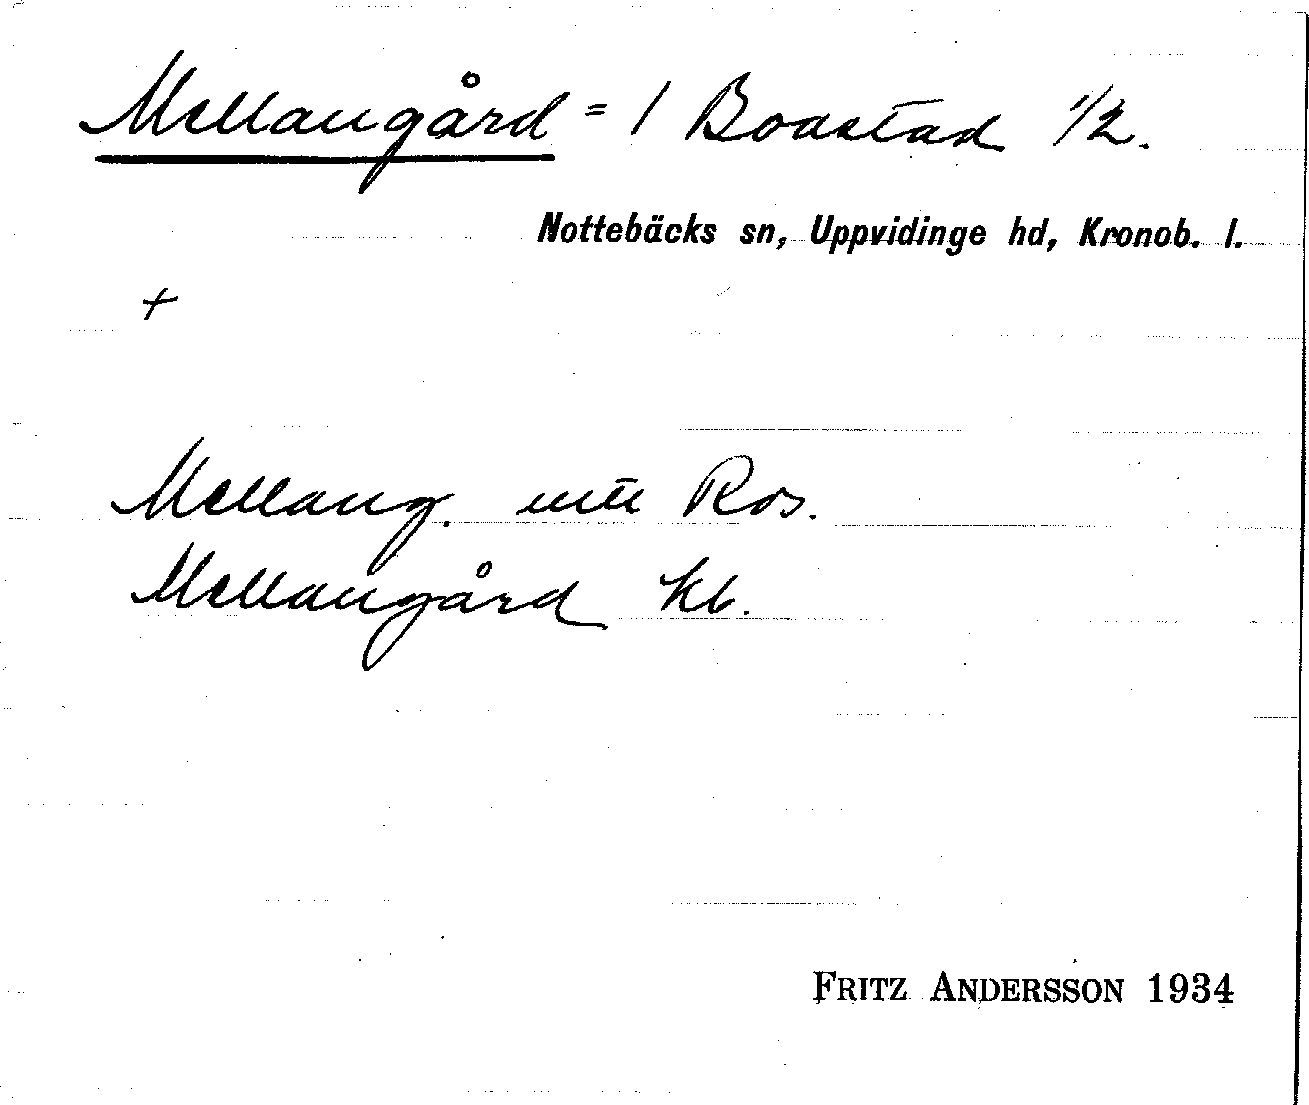 Mellangård = 1 Boastad 1/2.
Nottebäcks sn, Uppvidinge hd, Kronob. l.
+
Mellang. Ros.
Mellangård Kb.
FRITZ ANDERSSON 1934